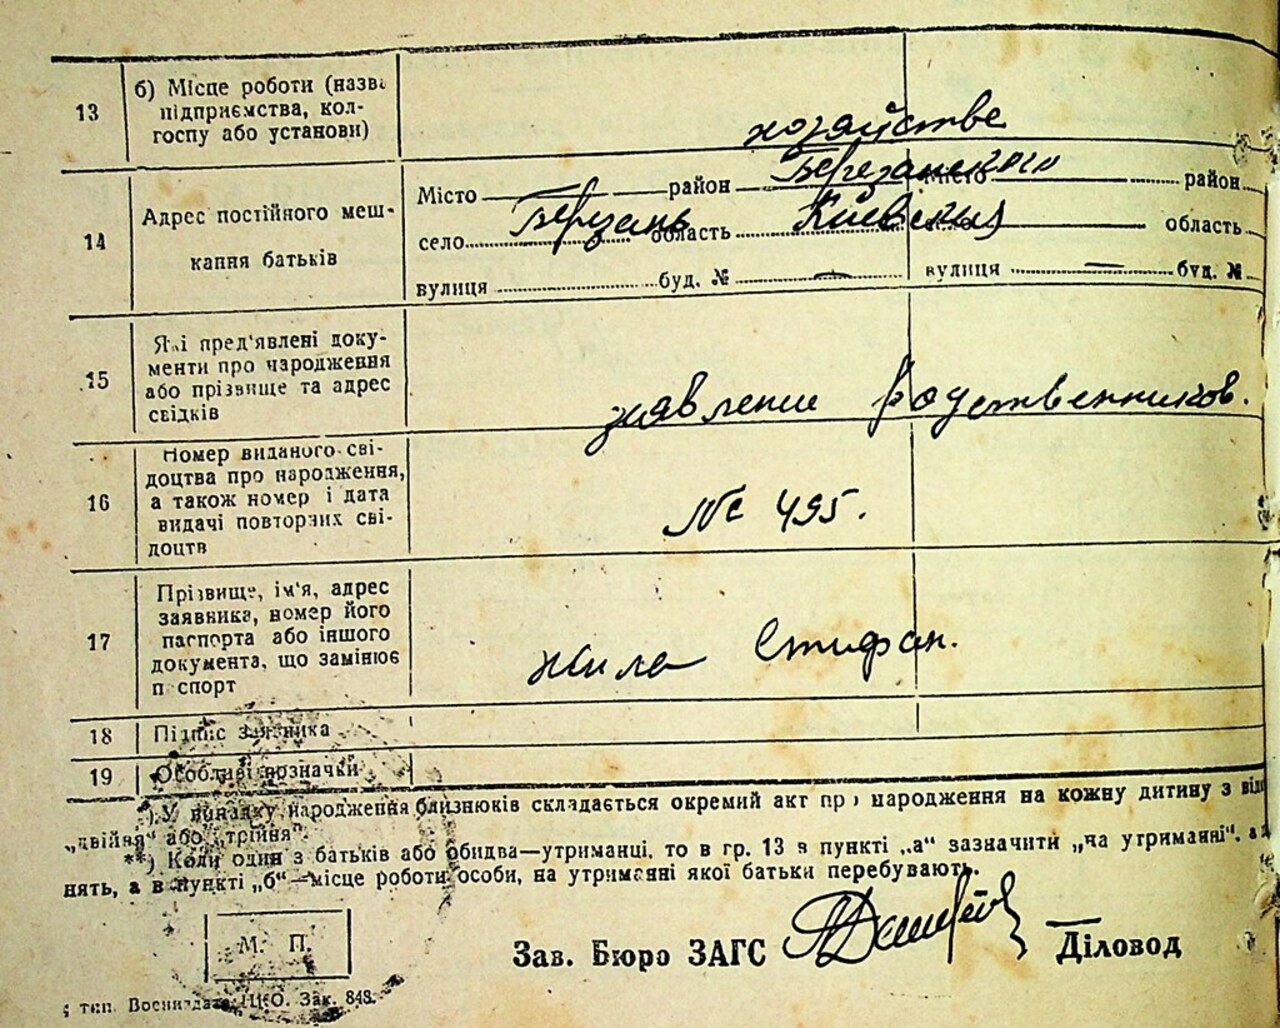 13
б) Місце роботи (назва
підприємства, кол-
госпу або установи)
хозяйстве
14
Адрес постійного меш-
кання батьків
Місто район Березанского Місто район
село Березань область Киевская область
вулиця буд. № — вулиця — буд. №
15
Які пред'явлені доку-
менти про народження
або прізвище та адрес
свідків
заявление родственников.
16
Номер виданого сві-
доцтва про народження,
а також номер і дата
видачі повторних сві-
доцтв
№ 495.
17
Прізвище, ім'я, адрес
заявника, номер його
паспорта або іншого
документа, що замінює
п спорт
Жила Стифан.
18 Підпис заявника
19 Особливі возначки
*) У випадку народження близнюків складається окремий акт пр народження на кожну дитину з
„двійня" або „трійня".
**) Коли один з батьків або обидва—утриманці, то в гр. 13 в пункті „а" зазначити „на утриманні", а
нять, а в пункті „б"—місце роботи особи, на утриманні якої батьки перебувають.
М. П.
Зав. Бюро ЗАГС Діловод
тип. Воениздата НКО. Зак. 848.